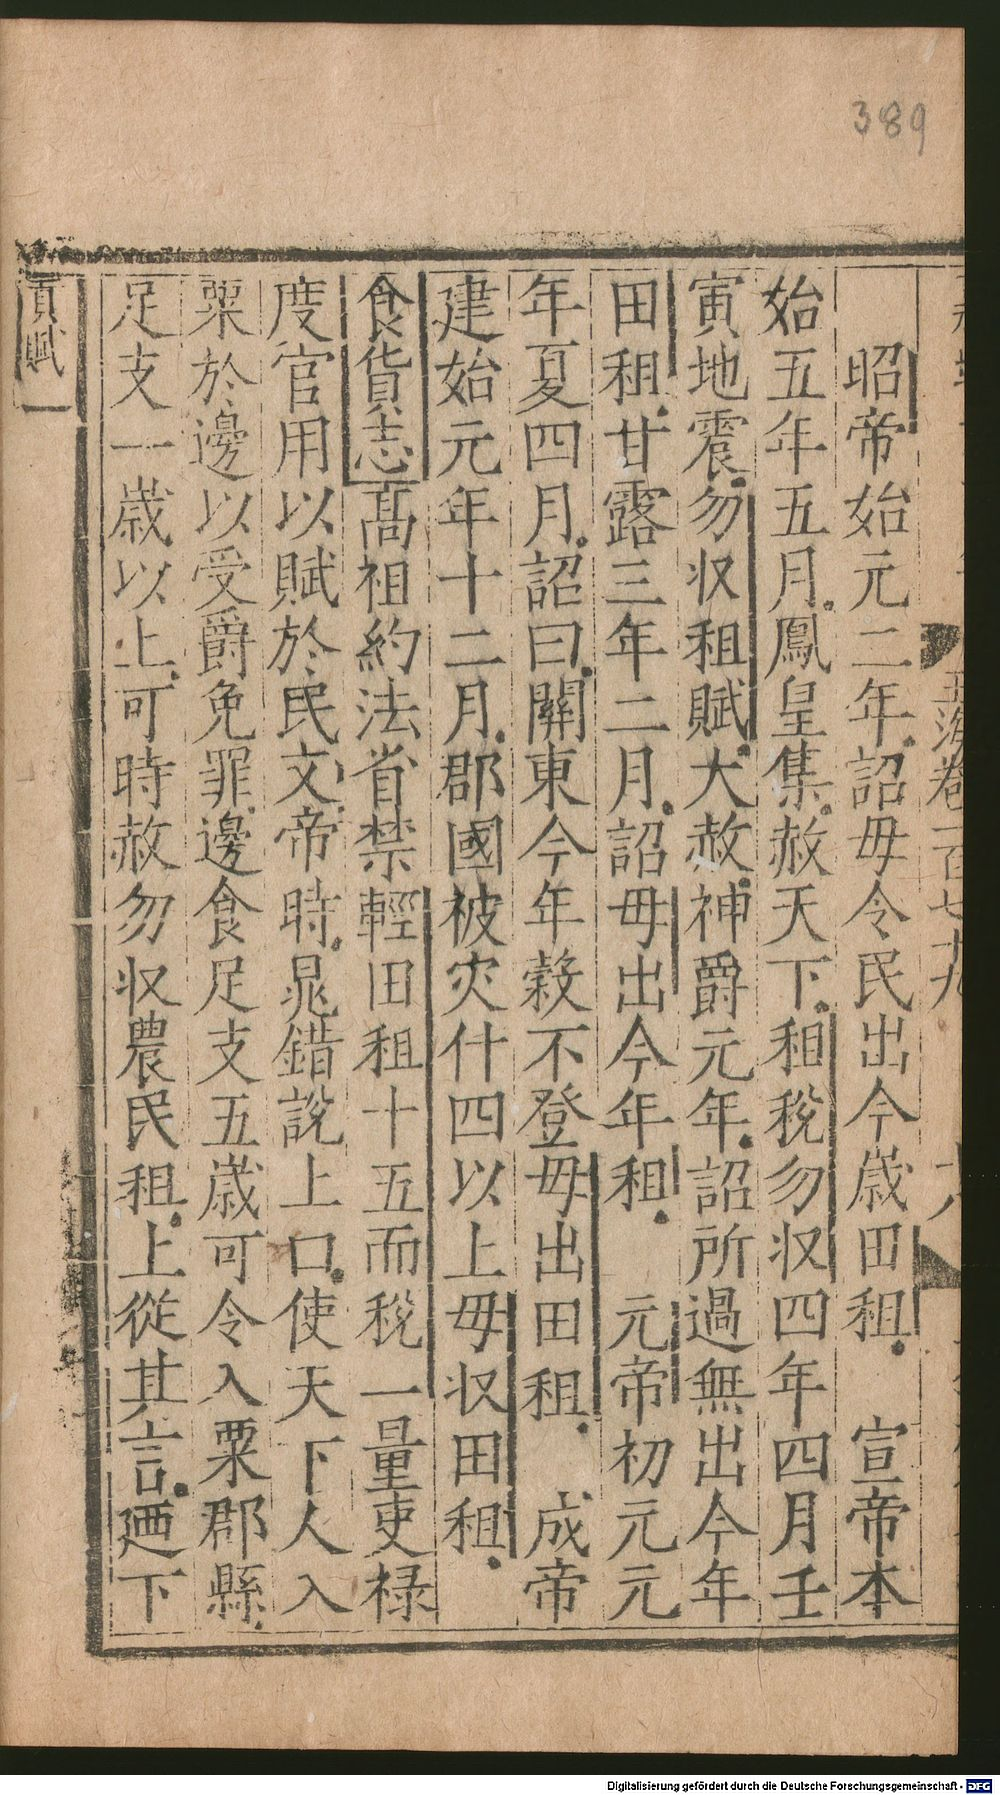 389
玉海卷一百七十九
十八
昭帝始元二年詔毋令民出今歲田租　宣帝本
始五年五月鳳皇集赦天下租稅勿収四年四月壬
寅地震勿収租賦大赦神爵元年詔所過無出今年
田租甘露三年二月詔毋出今年租　元帝初元元
年夏四月詔曰關東今年榖不登毋出田租　成帝
建始元年十二月郡國被灾什四以上毋収田租
食貨志髙祖約法省禁輕田租十五而稅一量吏禄
度官用以賦於民文帝時晁錯說上口使天下人入
粟於邊以受爵免罪邊食足支五歲可令入粟郡縣
足支一歲以上可時赦勿収農民租上從其言廼下
貢賦一
Digitalisierung gefördert durch die Deutsche Forschungsgemeinschaft - DFG